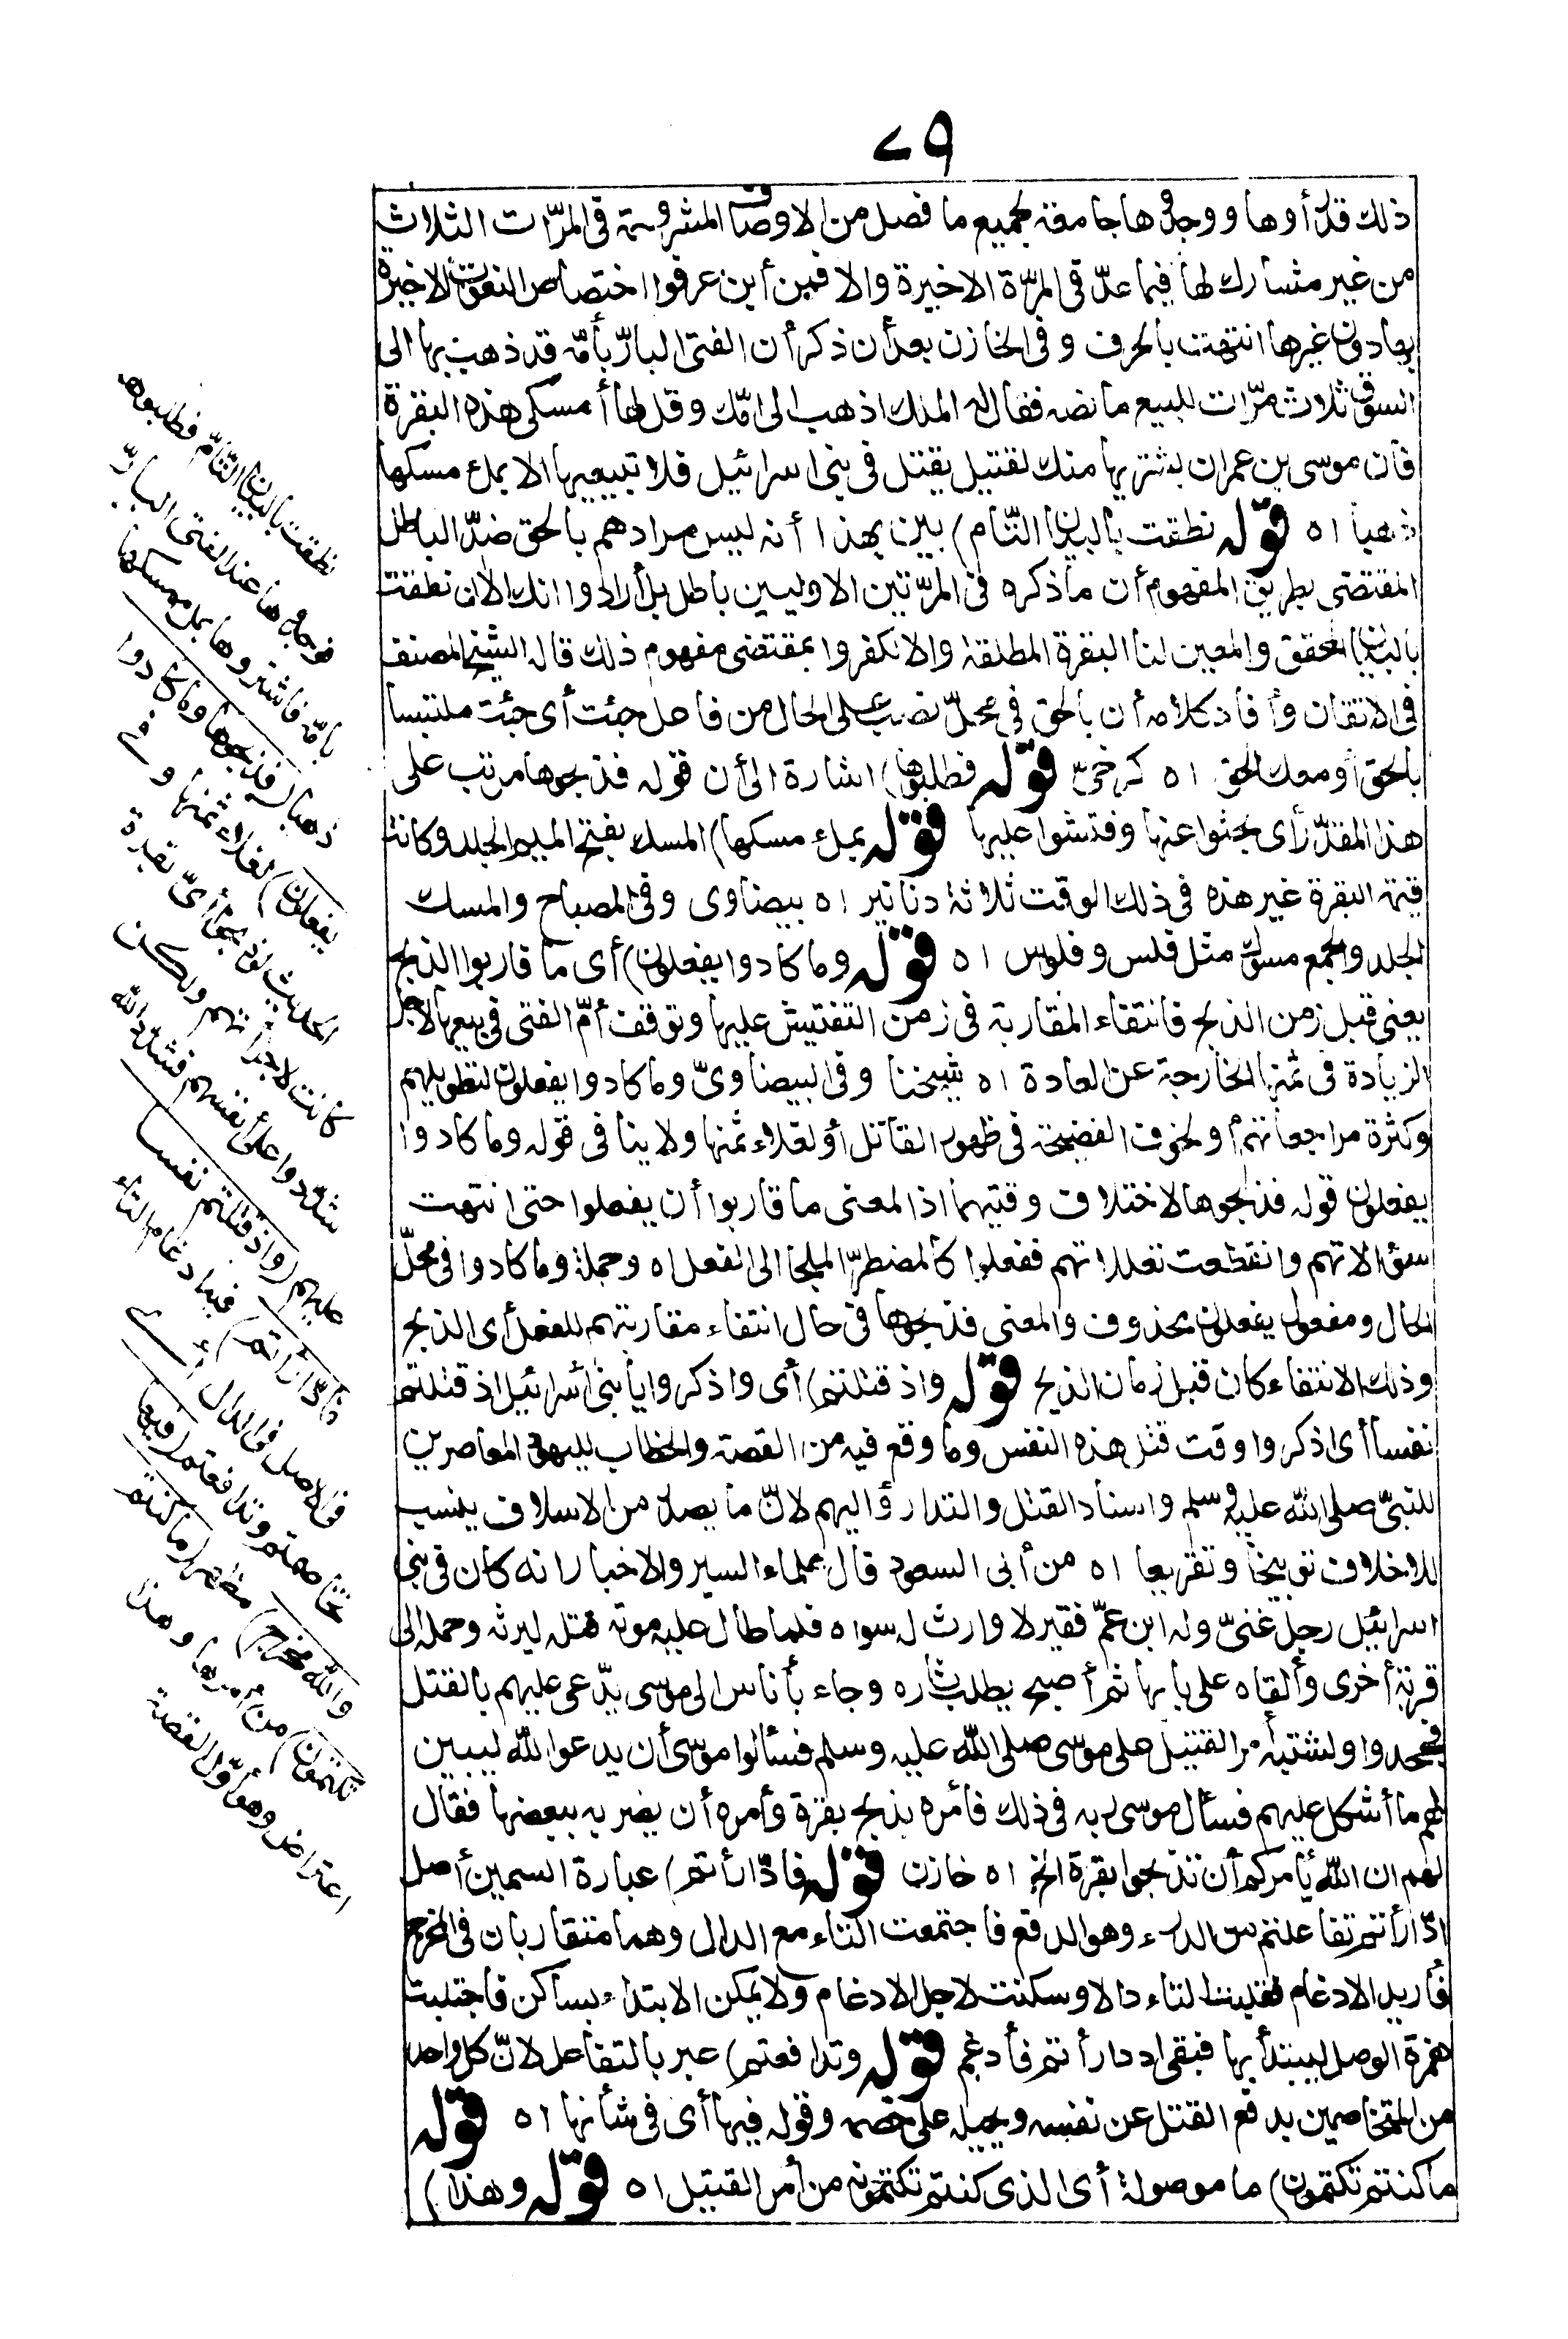 ٧٩
ذلك قد رأوها ووجدوها جامعة لجميع ما فصل من الاوصاف المشروحة فى المرّات الثلاث
من غير مشارك لها فيما عدّ فى المرّة الاخيرة والا فمن أين عرفوا اختصاص النعوت الاخيرة
بها دون غيرها انتهت بالحرف وفى الخازن بعد أن ذكر أن الفتى البارّ بأمّه قد ذهب بها الى
السوق ثلاث مرّات للبيع ما نصه فقال له الملك اذهب الى امّك وقل لها أمسكى هذه البقرة
فان موسى بن عمران يشتريها منك لقتيل يقتل فى بنى اسرائيل فلا تبيعيها الا بملء مسكها
ذهبا اه قوله نطقت بالبيان التّام) بين بهذا أنه ليس مرادهم بالحق ضدّ الباطل
المقتضى بطريق المفهوم أن ما ذكره فى المرّتين الاوليين باطل بل أرادوا انك الآن نطقت
بالبيان المحقق والمعين لنا البقرة المطلقة والا لكفروا بمقتضى مفهوم ذلك قاله الشيخ المصنف
فى الاتقان وأفاد كلامه أن بالحق فى محلّ نصب على الحال من فاعل جئت أى جئت ملتبسا
بالحق أو ومعك الحق اه كرخىّ قوله فطلبوها) اشارة الى أن قوله فذبحوها مرتب على
هذا المقدّر أى بحثوا عنها وفتشوا عليها قوله بملء مسكها) المسك بفتح الميم الجلد وكانت
قيمة البقرة غير هذه فى ذلك الوقت ثلاثة دنانير اه بيضاوى وفى المصباح والمسك
الجلد والجمع مسوك مثل فلس وفلوس اه قوله وما كادوا يفعلون) أى ما قاربوا الذبح
يعنى قبل زمن الذبح فانتفاء المقاربة فى زمن التفتيش عليها وتوقف أمّ الفتى فى بيعها لاجل
الزيادة فى ثمنها الخارجة عن العادة اه شيخنا وفى البيضاوىّ وما كادوا يفعلون لتطويلهم
وكثرة مراجعاتهم أو لخوف الفضيحة فى ظهور القاتل أو لغلاء ثمنها ولا ينافى قوله وما كادوا
يفعلون قوله فذبحوها لاختلاف وقتيهما اذ المعنى ما قاربوا أن يفعلوا حتى انتهت
سؤالاتهم وانقطعت تعللاتهم ففعلوا كالمضطرّ الملجا الى الفعل اه وجملة وما كادوا فى محلّ
الحال ومفعول يفعلون محذوف والمعنى فذبحوها فى حال انتفاء مقاربتهم للفعل أى الذبح
وذلك الانتفاء كان قبل زمان الذبح قوله واذ قتلتم) أى واذكروا يا بنى أسرائيل اذ قتلتم
نفسا أى اذكروا وقت قتل هذه النفس وما وقع فيه من القصة والخطاب لليهود المعاصرين
للنبىّ صلى اللّه عليه وسلم واسناد القتل والتدارؤ اليهم لانّ ما يصدر من الاسلاف ينسب
للاخلاف توبيخا وتقريعا اه من أبى السعود قال علماء السير والاخبار انه كان فى بنى
اسرائيل رجل غنىّ وله ابن عمّ فقير لا وارث له سواه فلما طال عليه موته قتله ليرثه وحمله الى
قرية أخرى وألقاه على بابها ثم أصبح يطلب ثاره وجاء بأناس الى موسى يدّعى عليهم بالقتل
فجحدوا واشتبه أمر القتيل على موسى صلى اللّه عليه وسلم فسألوا موسى أن يدعو اللّه ليبين
لهم ما أشكل عليهم فسأل موسى ربه فى ذلك فأمره بذبح بقرة وأمره أن يضربه ببعضها فقال
لهم ان اللّه يأمركم أن تذبحوا بقرة الخ اه خازن قوله فادّارأتم) عبارة السمين أصل
ادّارأتم تفاعلتم من الدرء وهو الدفع فاجتمعت التاء مع الدال وهما متقاربان فى المخرج
فأريد الادغام فقلبت التاء دالا وسكنت لاجل الادغام ولا يمكن الابتداء بساكن فاجتلبت
همزة الوصل ليبتدأ بها فبقى اددارأتم فأدغم قوله وتدافعتم) عبر بالتفاعل لانّ كل واحد
من المتخاصمين يدفع القتل عن نفسه ويحيله على خصمه وقوله فيها أى فى شأنها اه قوله
ما كنتم تكتمون) ما موصولة أى الذى كنتم تكتمونه من أمر القتيل اه قوله وهذا)
نطقت بالبيان التّامّ فطلبوها
فوجدوها عند الفتى البارّ
بأمّه فاشتروها بملء مسكها
ذهبا (فذبحوها وما كادوا
يفعلون) لغلاء ثمنها وفى
الحديث لو ذبحوا أىّ بقرة
كانت لاجزأتهم ولكن
شدّدوا على أنفسهم فشدّد اللّه
عليهم (واذ قتلتم نفسا
فادّارأتم) فيه ادغام التاء
فى الاصل فى الدال أى
تخاصمتم وتدافعتم (فيها
واللّه مخرج) مظهر (ما كنتم
تكتمون) من أمرها وهذا
اعتراض وهو أوّل القصة